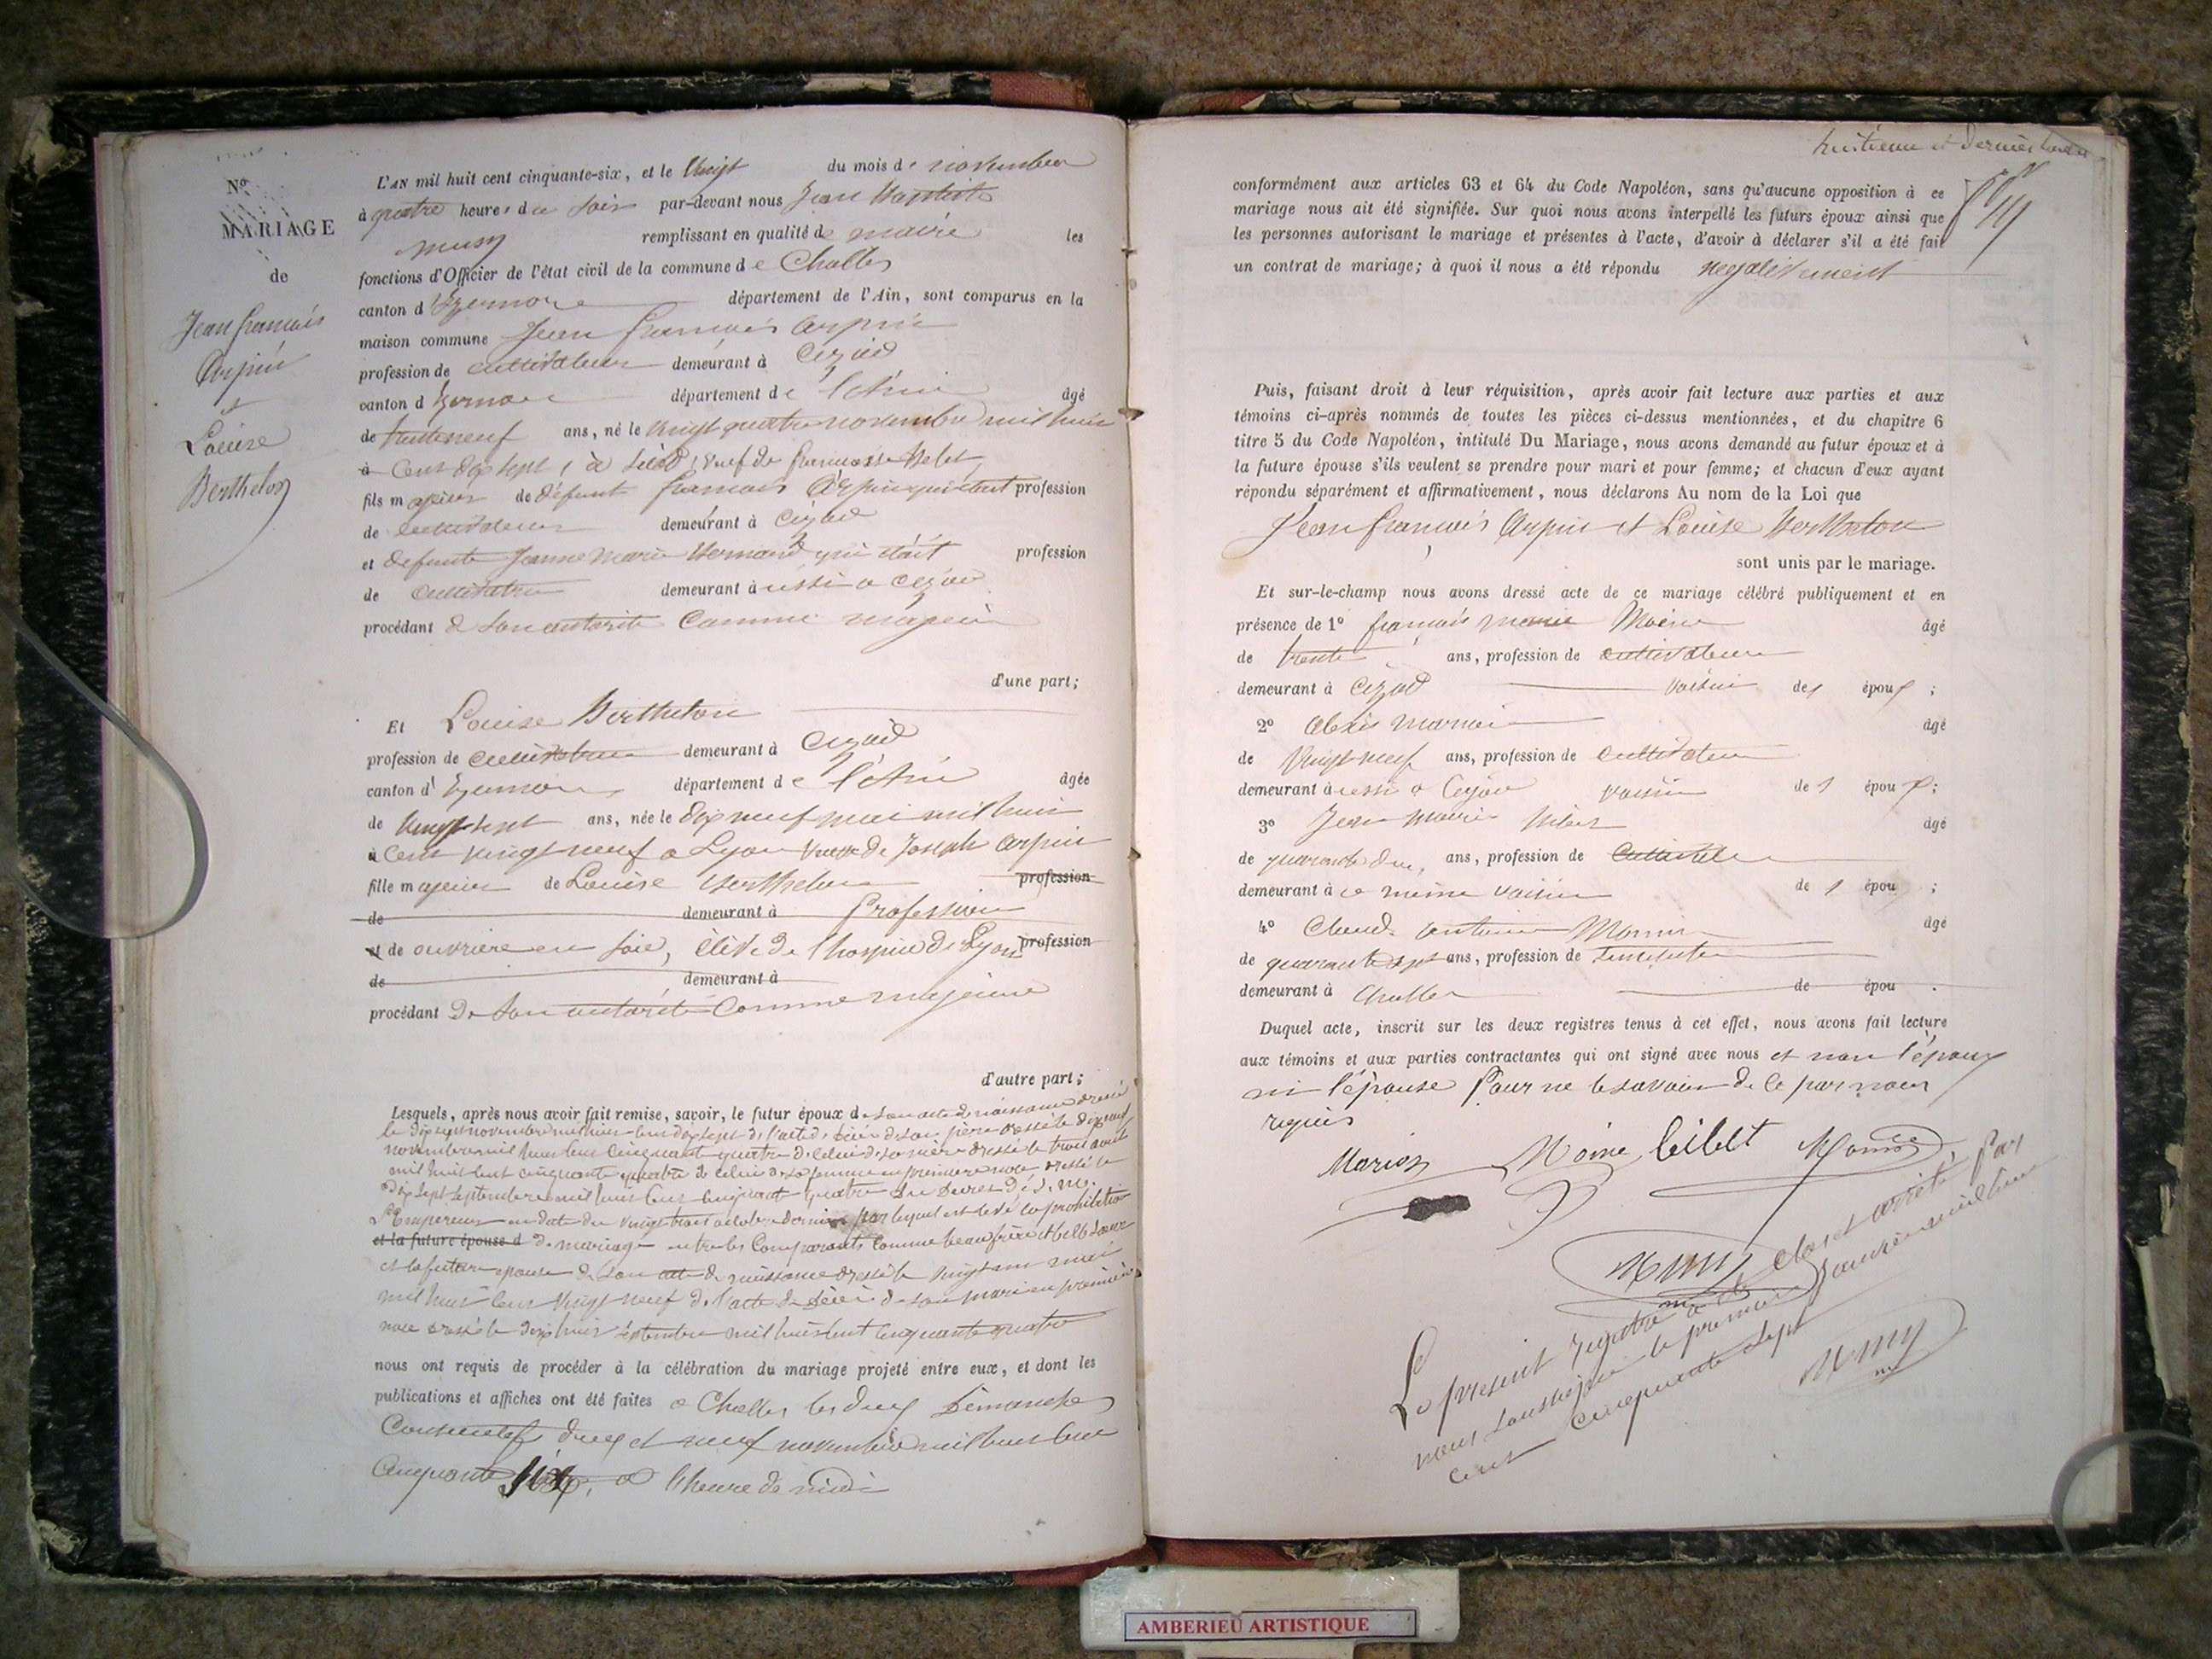 N°
MARIAGE
de
Jean françois
Arpin
et
Louise
Berthelon
L'AN mil huit cent cinquante-six, et le Vingt du mois de novembre
à quatre heures du soir par-devant nous Jean Baptiste
musy remplissant en qualité de maire les
fonctions d'Officier de l'état civil de la commune de Challes
canton d'Izernore département de l'Ain, sont comparus en la
maison commune Jean françois Arpin
profession de cultivateur demeurant à Cizod
canton d'Izernore département de l'Ain âgé
de trente neuf ans, né le vingt quatre novembre mil huit
à Cent dix sept, à veuf de françoise
fils majeur de défunt françois Arpin qui était profession
de cultivateur demeurant à Cizod
et defunte Jeanne marie Bernard qui était profession
de cultivatrice demeurant à ussi a cizod
procédant de son autorité Comme majeur
d'une part;
Et Louise Berthelon
profession de cultivatrice demeurant à Cizod
canton d'Izernore département de l'Ain âgée
de vingt sept ans, née le dix neuf mai mil huit
à Cent vingt neuf a Lyon Veuve de Joseph Arpin
fille majeure de Louise Berthelon profession
de demeurant à Profession
et de ouvrière en soie, élève de l'hospice de Lyon profession
de demeurant à
procédant De son autorité Comme majeure
d'autre part;
Lesquels, après nous avoir fait remise, savoir, le futur époux de son acte de naissance dressé
le dix sept novembre mil huit cent dix sept de l'acte de décès de son père dressé le dix neuf
novembre mil huit cent cinquante quatre de celui de sa mère dressé le trois août
mil huit cent cinquante quatre de celui de sa femme en première noce dressé le
dix sept septembre mil huit cent cinquante quatre du Decret de S. M.
L'Empereur en date du vingt trois octobre dernier par lequel est levé la prohibition
et la future épouse d de mariage entre les Comparants Comme beau frère et belle soeur
et la future epouse de son acte de naissance dressé le vingt un mai
mil huit cent vingt neuf de l'acte de décès de son mari en première
noce dressé le dix huit septembre mil huit cent cinquante quatre
nous ont requis de procéder à la célébration du mariage projeté entre eux, et dont les
publications et affiches ont été faites a Challes les deux Dimanches
Consecutifs deux et neuf novembre mil huit cent
Cinquante six, a l'heure de midi
huitième et dernier
conformément aux articles 63 et 64 du Code Napoléon, sans qu'aucune opposition à ce
mariage nous ait été signifiée. Sur quoi nous avons interpellé les futurs époux ainsi que
les personnes autorisant le mariage et présentes à l'acte, d'avoir à déclarer s'il a été fait
un contrat de mariage; à quoi il nous a été répondu negativement
Puis, faisant droit à leur réquisition, après avoir fait lecture aux parties et aux
témoins ci-après nommés de toutes les pièces ci-dessus mentionnées, et du chapitre 6
titre 5 du Code Napoléon, intitulé Du Mariage, nous avons demandé au futur époux et à
la future épouse s'ils veulent se prendre pour mari et pour femme; et chacun d'eux ayant
répondu séparément et affirmativement, nous déclarons Au nom de la Loi que
Jean françois Arpin et Louise Berthelon
sont unis par le mariage.
Et sur-le-champ nous avons dressé acte de ce mariage célébré publiquement et en
présence de 1° françois marie Moine âgé
de trente ans, profession de cultivateur
demeurant à Cizod voisin des époux;
2° alexis âgé
de Vingt neuf ans, profession de cultivateur
demeurant à ussi a Cizod voisin des époux;
3° Jean Marie âgé
de quarante deux ans, profession de Cultivateur
demeurant à ce même voisin des épou ;
4° Claude antoine âgé
de quarante sept ans, profession de Instituteur
demeurant à Challes de épou .
Duquel acte, inscrit sur les deux registres tenus à cet effet, nous avons fait lecture
aux témoins et aux parties contractantes qui ont signé avec nous et non l'époux
ni l'épouse Pour ne le savoir de ce par nous
requis
Moine
Musy
Le présent registre a été clos et arrêté par
nous soussigné le premier janvier mil huit
cent cinquante sept
Musy
AMBERIEU ARTISTIQUE